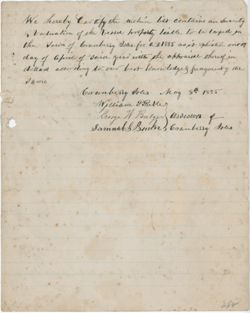 We hereby Certify the within list contains an Inventory
& Valuation of the Vessel property liable to be taxed in
the Town of Cranberry Isles for A.D. 1885 as it existed on the 1st
day of April of said year with the appraisal thereof in
dollars according to our best knowledge & judgment of the
Same
Cranberry Isles May 8th 1885
William
George H. Bulger Assessors of
Samuel S. Cranberry Isles